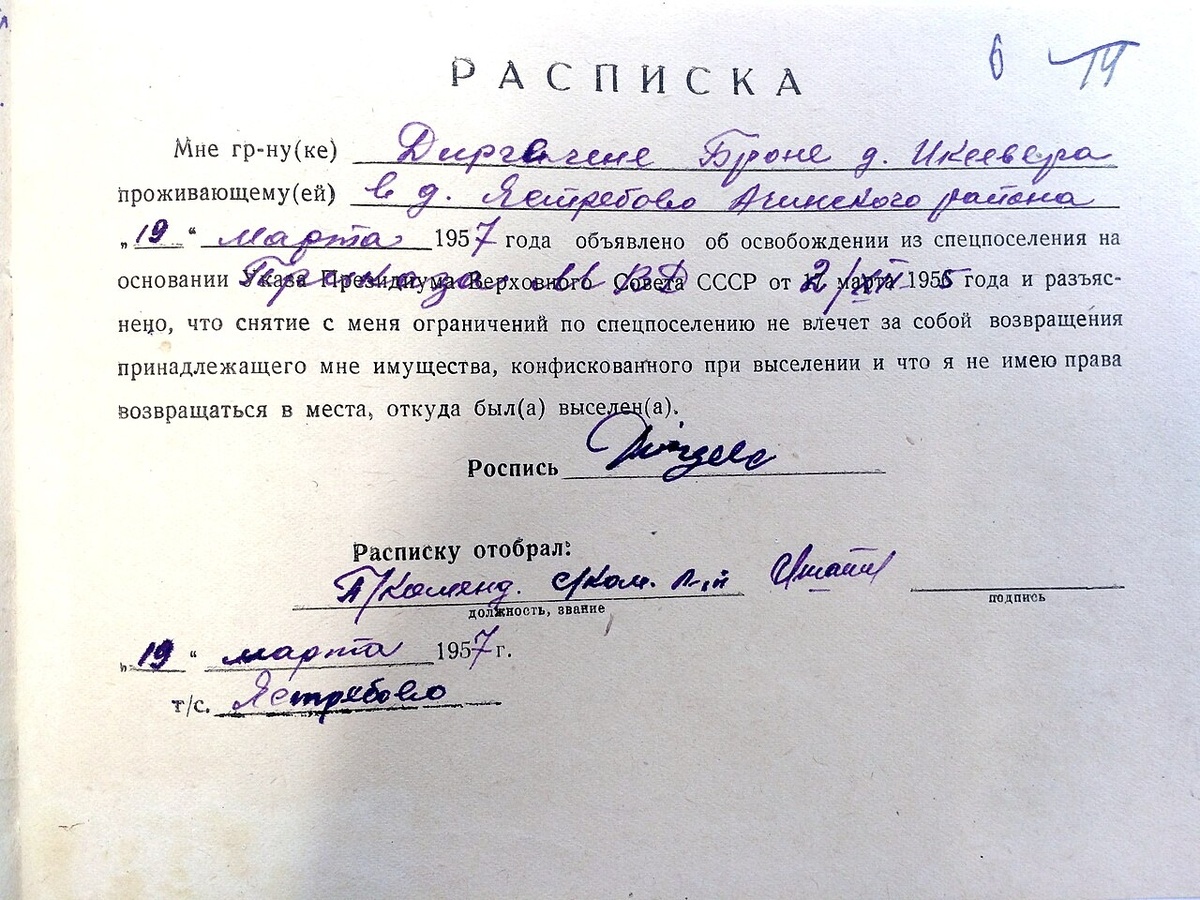 6 14
РАСПИСКА
Мне гр-ну(ке) Диргелене Броне д.
проживающему(ей) в д. Ястребово Ачинского района
„19“ марта 1957 года объявлено об освобождении из спецпоселения на
основании Указа Президиума Верховного Совета Приказа МВД СССР от 17 марта 2/XII 1955 года и разъяс-
нено, что снятие с меня ограничений по спецпоселению не влечет за собой возвращения
принадлежащего мне имущества, конфискованного при выселении и что я не имею права
возвращаться в места, откуда был(а) выселен(а).
Роспись
Расписку отобрал:
П/Коменд. с/ком. Л-т
должность, звание
подпись
„19“ марта 1957 г.
т/с. Ястребово